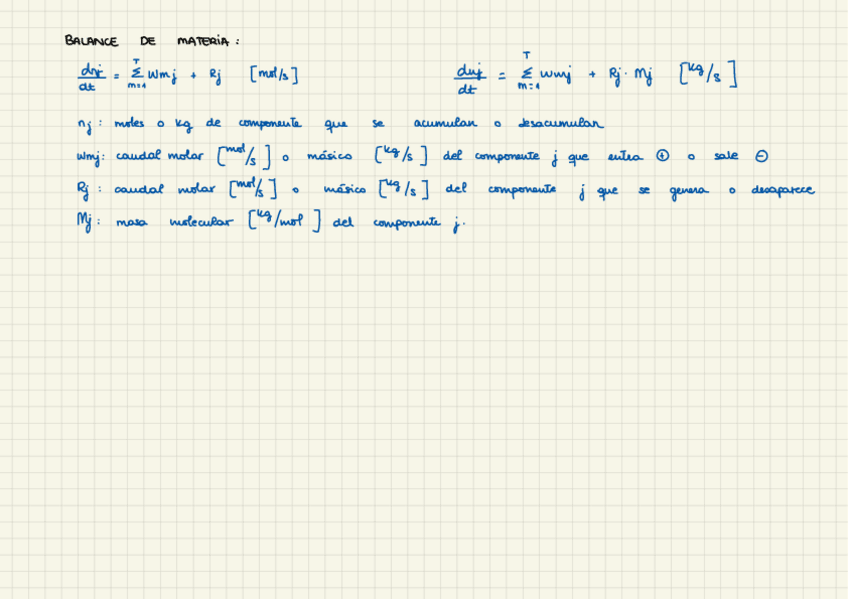 BALANCE DE MATERIA:
dnj/dt = Σ(m=1→T) Wmj + Rj [mol/s] dmj/dt = Σ(m=1→T) wmj + Rj · Mj [kg/s]
nj: moles o kg de componente que se acumulan o desacumulan
wmj: caudal molar [mol/s] o másico [kg/s] del componente j que entra ⊕ o sale ⊖
Rj: caudal molar [mol/s] o másico [kg/s] del componente j que se genera o desaparece
Mj: masa molecular [kg/mol] del componente j.